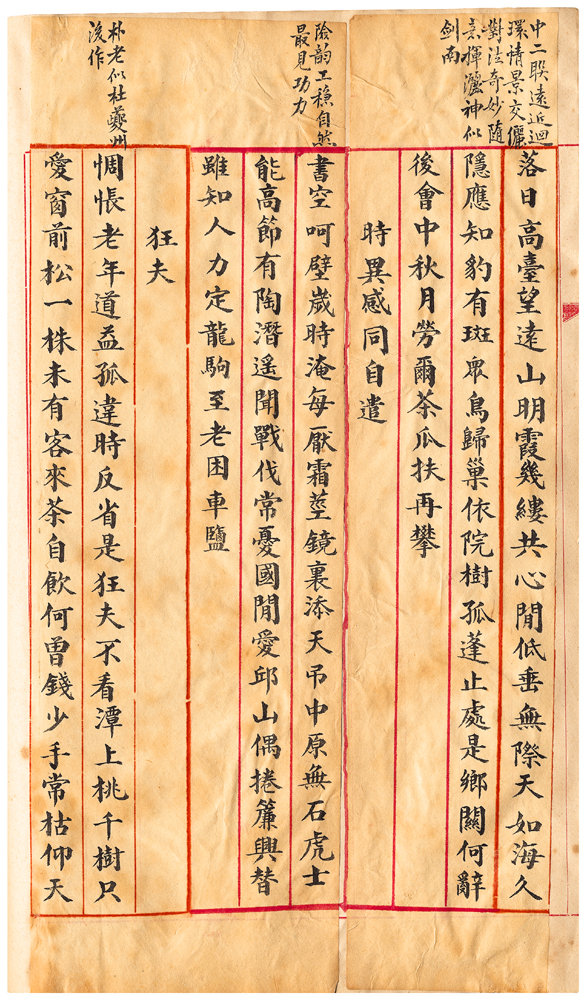 中二聯遠近迴
環情景交儷
對法奇妙隨
意揮灑神似
劍南
落日高臺望遠山明霞幾縷共心閒低垂無際天如海久
隱應知豹有斑眾鳥歸巢依院樹孤蓬止處是鄉關何辭
後會中秋月勞爾茶瓜扶再攀
時異感同自遣
險韵工穩自然
最見功力
書空呵壁歲時淹每厭霜莖鏡裏添天弔中原無石虎士
能高節有陶潛遙聞戰伐常憂國閒愛邱山偶捲簾興替
雖知人力定龍駒至老困車鹽
狂夫
朴老似杜夔州
後作
惆悵老年道益孤違時反省是狂夫不看潭上桃千樹只
愛窗前松一株未有客來茶自飲何曾錢少手常枯仰天